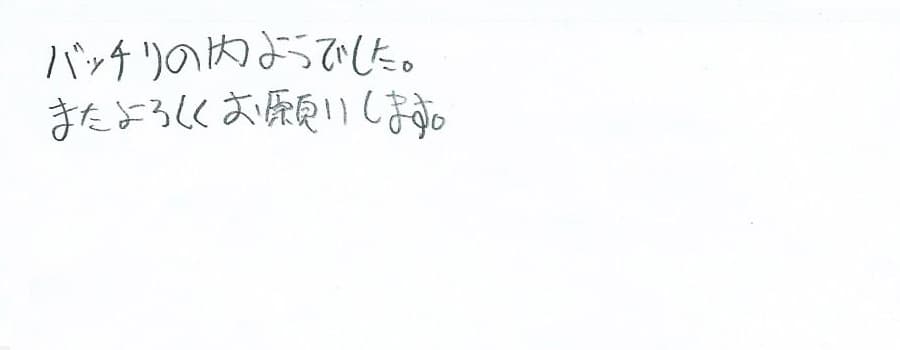 バッチリの内ようでした。
またよろしくお願いします。